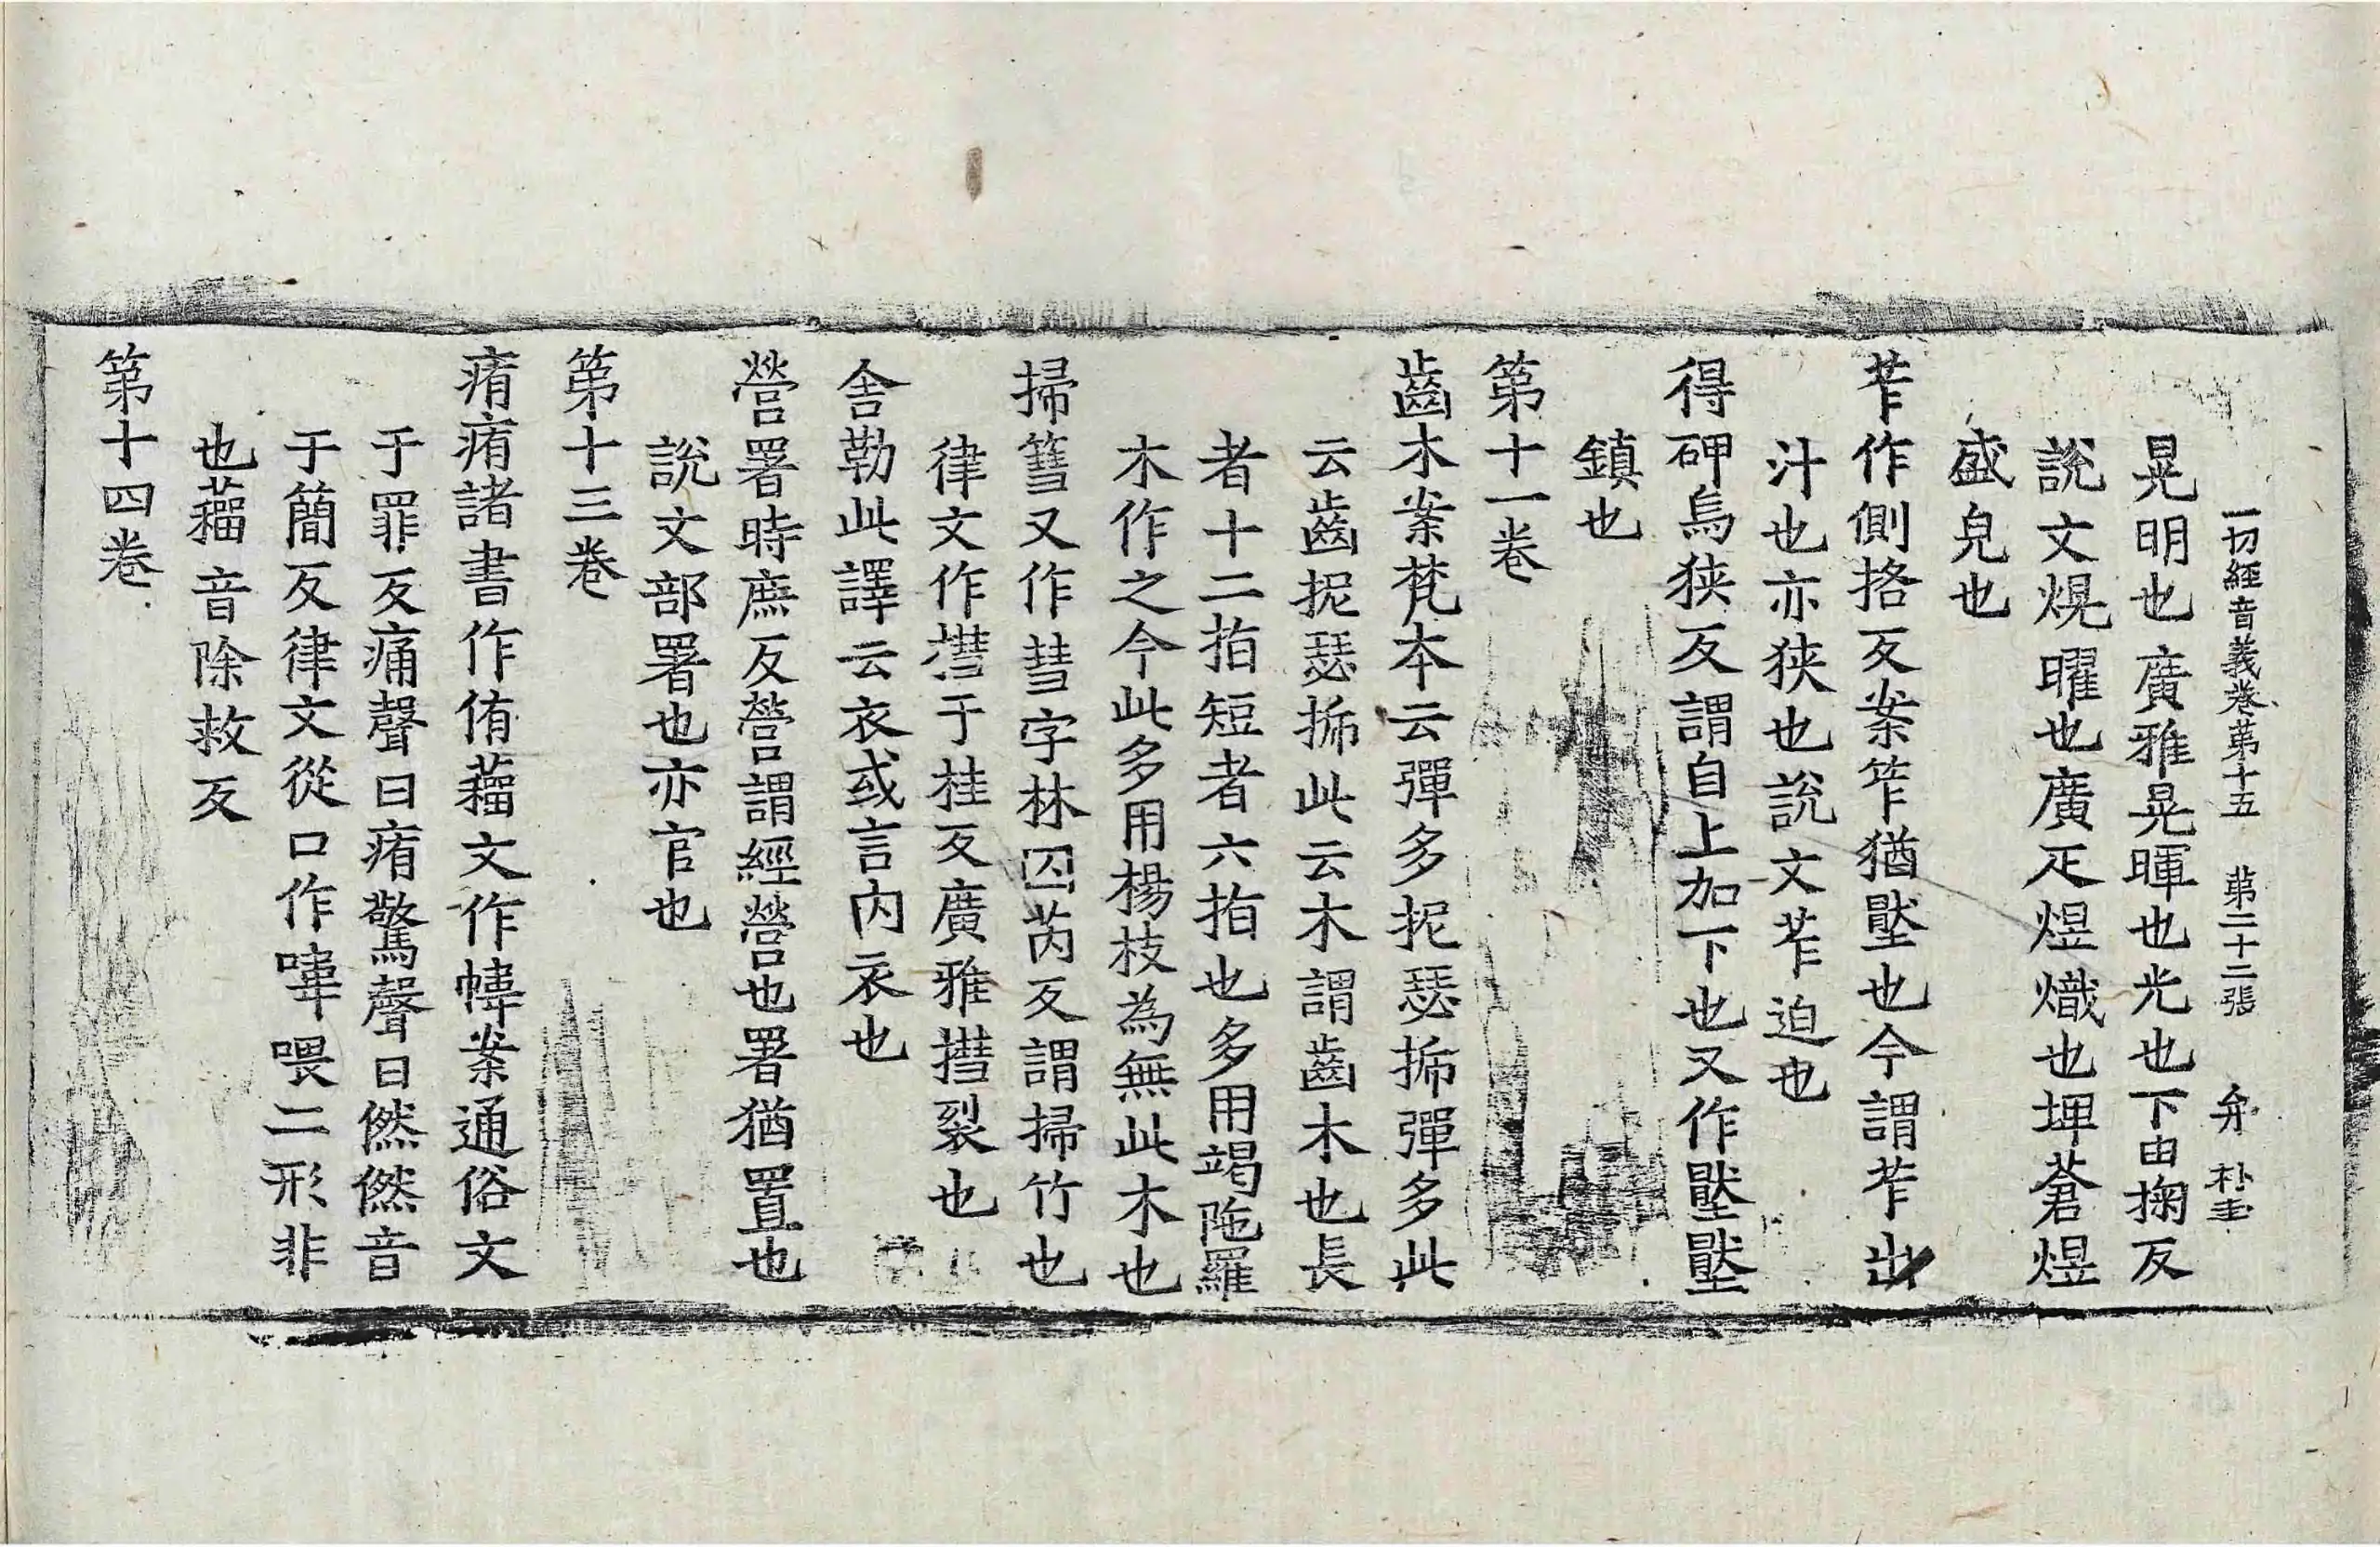 一切經音義卷第十五　第二十二張　弁　朴圭
晃明也廣雅晃暉也光也下由掬反
說文熀曜也廣疋煜熾也埤蒼煜
盛皃也
苲作側挌反案笮猶壓也今謂苲出
汁也亦狹也說文苲迫也
得砷烏狹反謂自上加下也又作壓壓
鎮也
第十一卷
齒木案梵本云彈多抳瑟搋彈多此
云齒抳瑟搋此云木謂齒木也長
者十二指短者六指也多用竭陁羅
木作之今此多用楊枝為無此木也
掃篲又作彗字林囚芮反謂掃竹也
律文作㨹于桂反廣雅㨹裂也
舍勒此譯云衣或言內衣也
營署時庶反營謂經營也署猶置也
說文部署也亦官也
第十三卷
痏痏諸書作侑籀文作㡔案通俗文
于罪反痛聲曰痏驚聲曰㷼㷼音
于簡反律文從口作㗲喂二形非
也籀音除救反
第十四卷